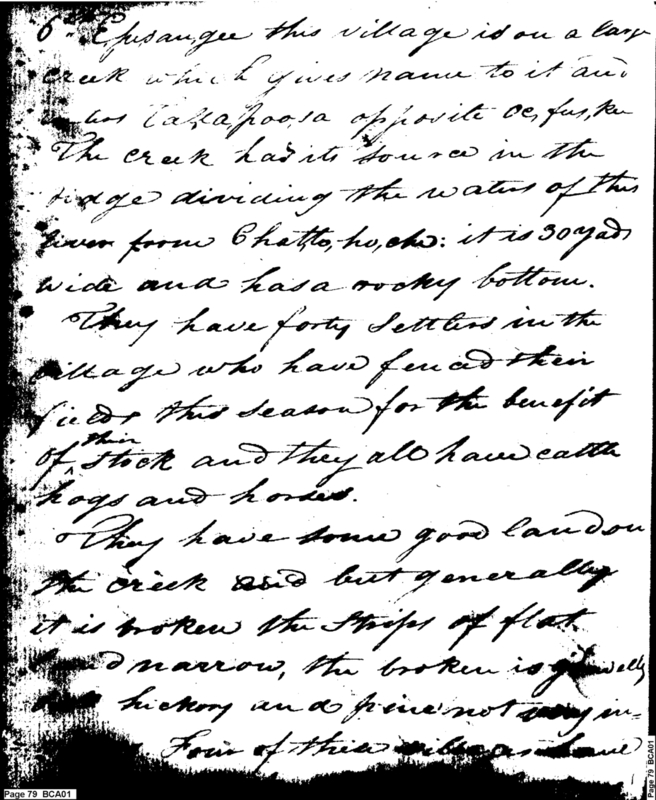 6th Epesaugee this village is on a large
creek which gives name to it and
Tallapoosa opposite oc,fus,kee
The creek has its source in the
ridge dividing the waters of this
river from Chatto,ho,che: it is 30 yads
wide and has a rocky bottom.
They have forty Settlers in the
village who have fenced their
fields this season for the benefit
of their Stock and they all have cattle
hogs and horses.
They have some good land on
the creek and but generally
it is broken the Strips of flat
land narrow, the broken is
hickory and pine not very in-
Four of these have
Page 79 BCA01
Page 79 BCA01